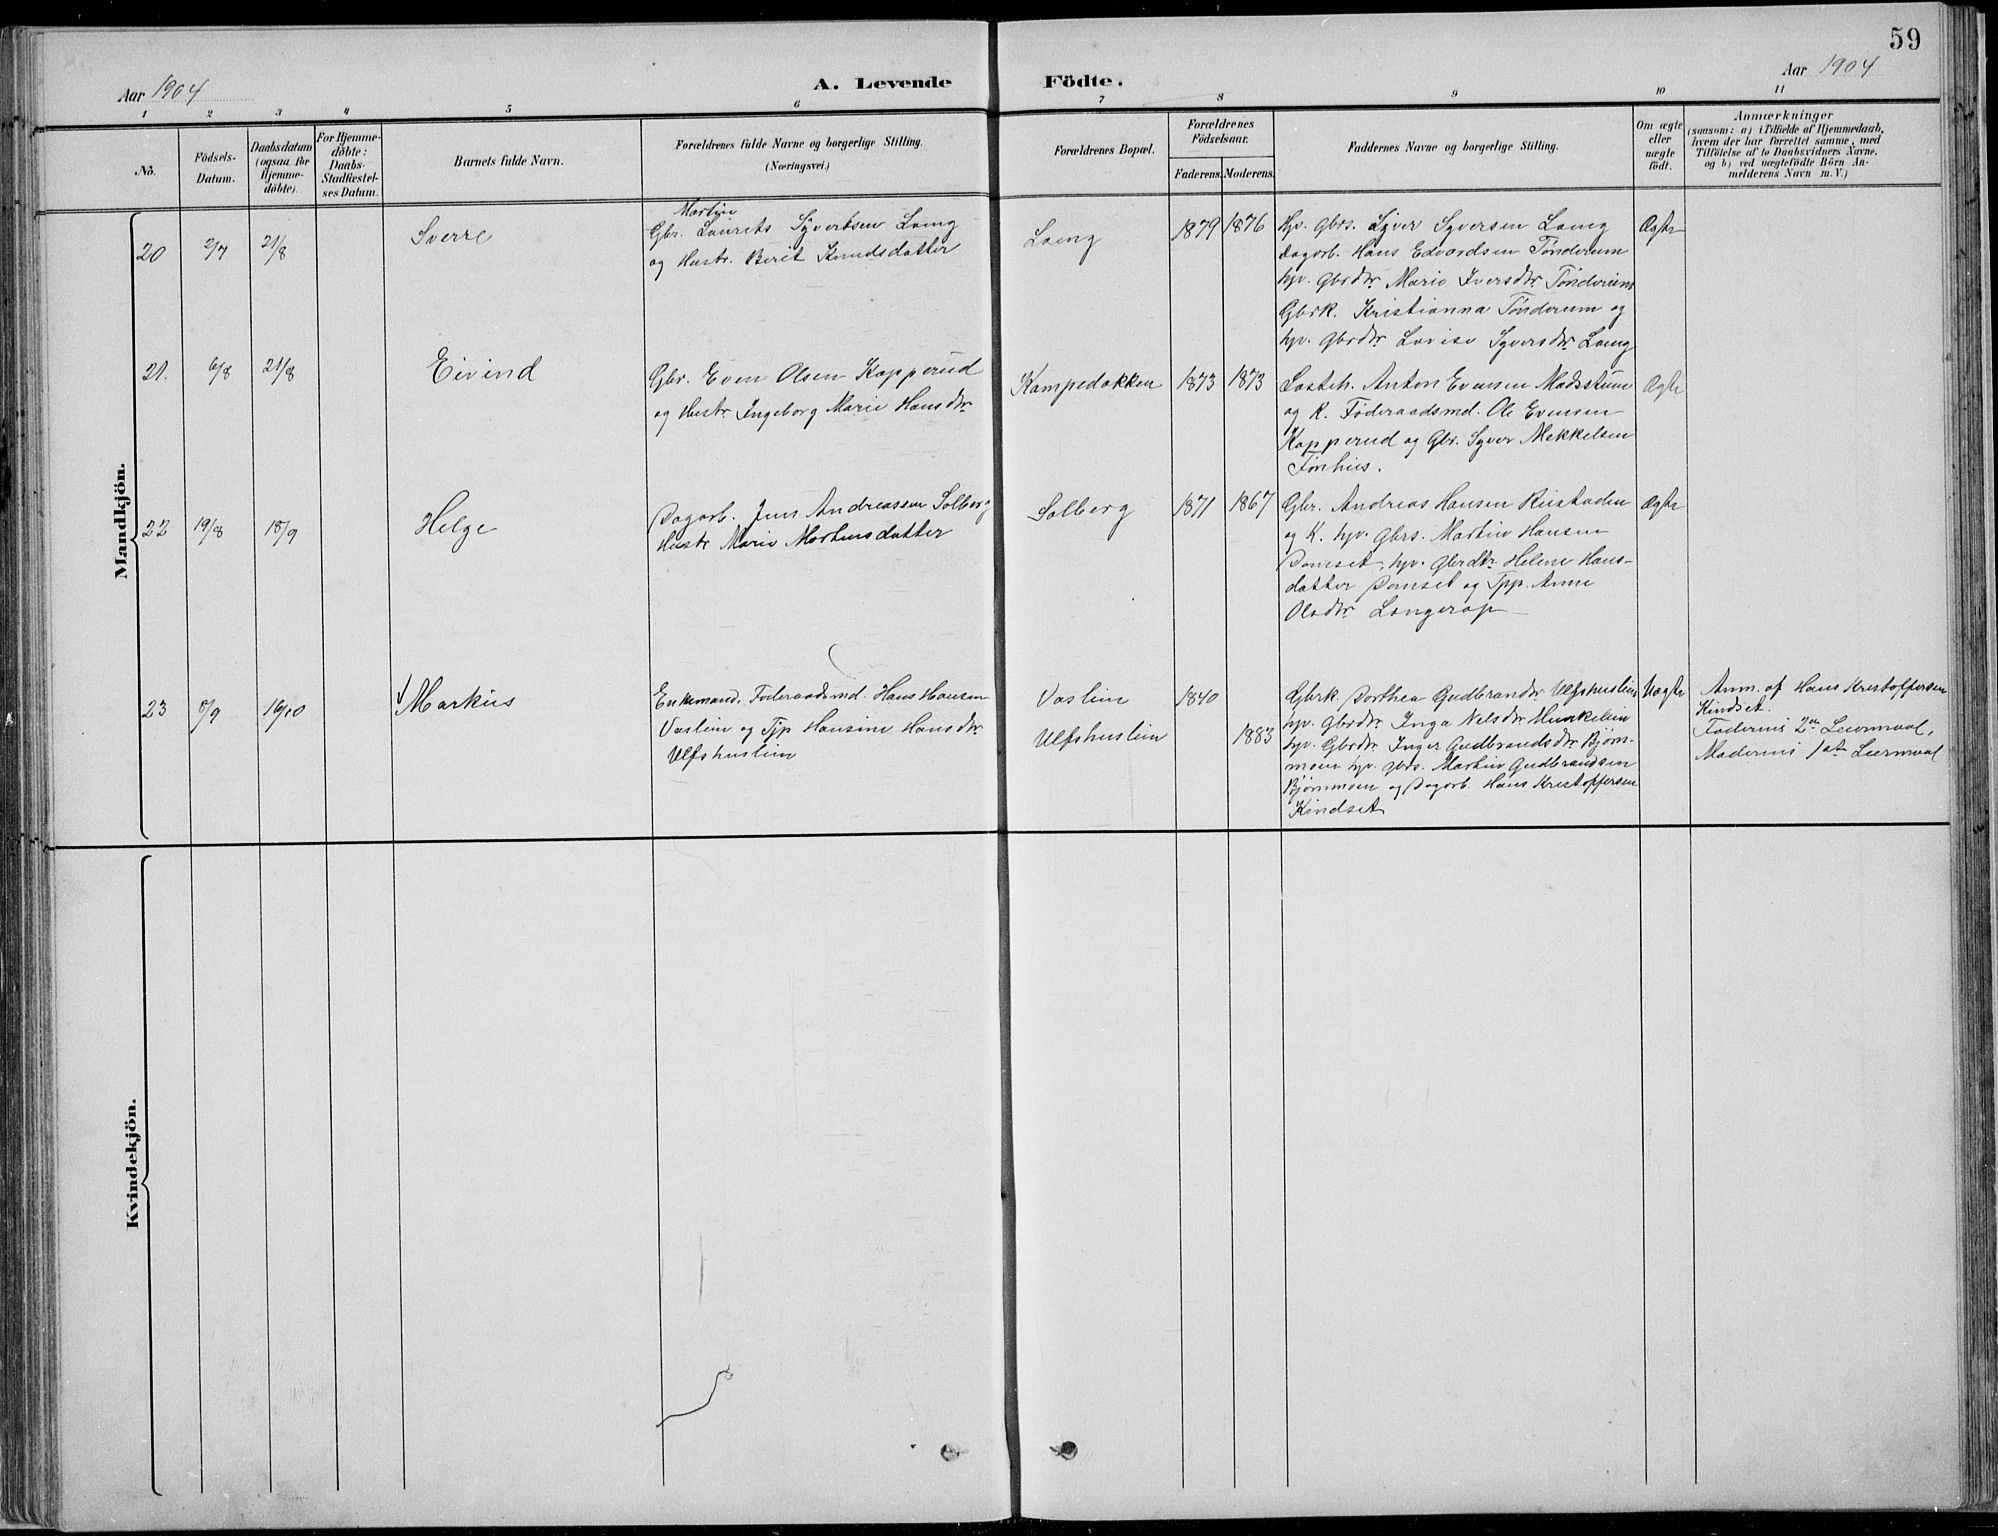 59
Aar 1904
A. Levende Födte.
Aar 1904
1 2 3 4 5 6 7 8 9 10 11
No.
Födsels-
Datum.
Daabsdatum
(ogsaa for
Hjemme-
döbte).
For Hjemme-
döbte:
Daabs-
Stadfæstel-
ses Datum.
Barnets fulde Navn.
Forældrenes fulde Navne og borgerlige Stilling.
(Næringsvei.)
Forældrenes Bopæl.
Forældrenes
Födselsaar.
Faderens. Moderens.
Faddernes Navne og borgerlige Stilling.
Om ægte
eller
uægte
födt.
Anmærkninger
(saasom: a) i Tilfælde af Hjemmedaab,
hvem der har forrettet samme, med
Tilföielse af to Daabsvidners Navne,
og b) ved uægtefödte Börn An-
melderens Navn m. V.)
Mandkjön.
20 2/7 21/8
Sverre
Martin
Gbr. Laurits Syvertsen Laing
og Hustr. Berit Knudsdatter
Laeng
1879 1876
Hp. Gbrs. Syver Syversen Laeng
Dagarb. Hans Edvardsen Tønderum
hp. Gbrdtr Marie Iversdtr. Tønderum
Gbrk. Kristianna Tønderum og
hp. Gbrdtr Lovise Syversdtr Laeng
Ægte
21. 6/8 21/8
Eivind
Gbr. Even Olsen Kopperud
og Hustr Ingeborg Marie Hansdtr
Kampedokken
1873 1873
Anton Evensen Madsstuen
og K. Føderaadsmd. Ole Evensen
Kopperud og Gbr. Syver Mekkelsen
Tønhus.
Ægte
22 19/8 18/9
Helge
Dagarb. Jens Andreassen Solberg
Hustr Marie Mortensdatter
Solberg
1871 1867
Gbr. Andreas Hansen Rustaden
og K. hp. Gbrs. Martin Hansen
Domset, hp. Gbrdtr Helene Hans-
datter Domset og Tpp. Anne
Olsdtr Langerap
Ægte
23 8/9 16/10
Markus
Enkemand, Føderaadsmd. Hans Hansen
Vaslien og Tjp Hansine Hansdtr
Ulfshuslien
Vaslien
Ulfshuslien
1840
1883
Gbrk. Dorthea Gudbrandsdtr Ulfshuslien
hp. Gbrdtr. Inga Nelsdtr Hunkelien
hp. Gbrdtr. Inger Gudbrandsdtr Bjørn-
moen hp. Gbrs. Martin Gudbrandsen
Bjørnmoen og Dagarb. Hans Kristoffersen
Kindset
Uægte
Anm. af Hans Kristoffersen
Kindset.
Faderens 2det Leiermaal,
Moderens 1ste Leiermaal
Kvindekjön.